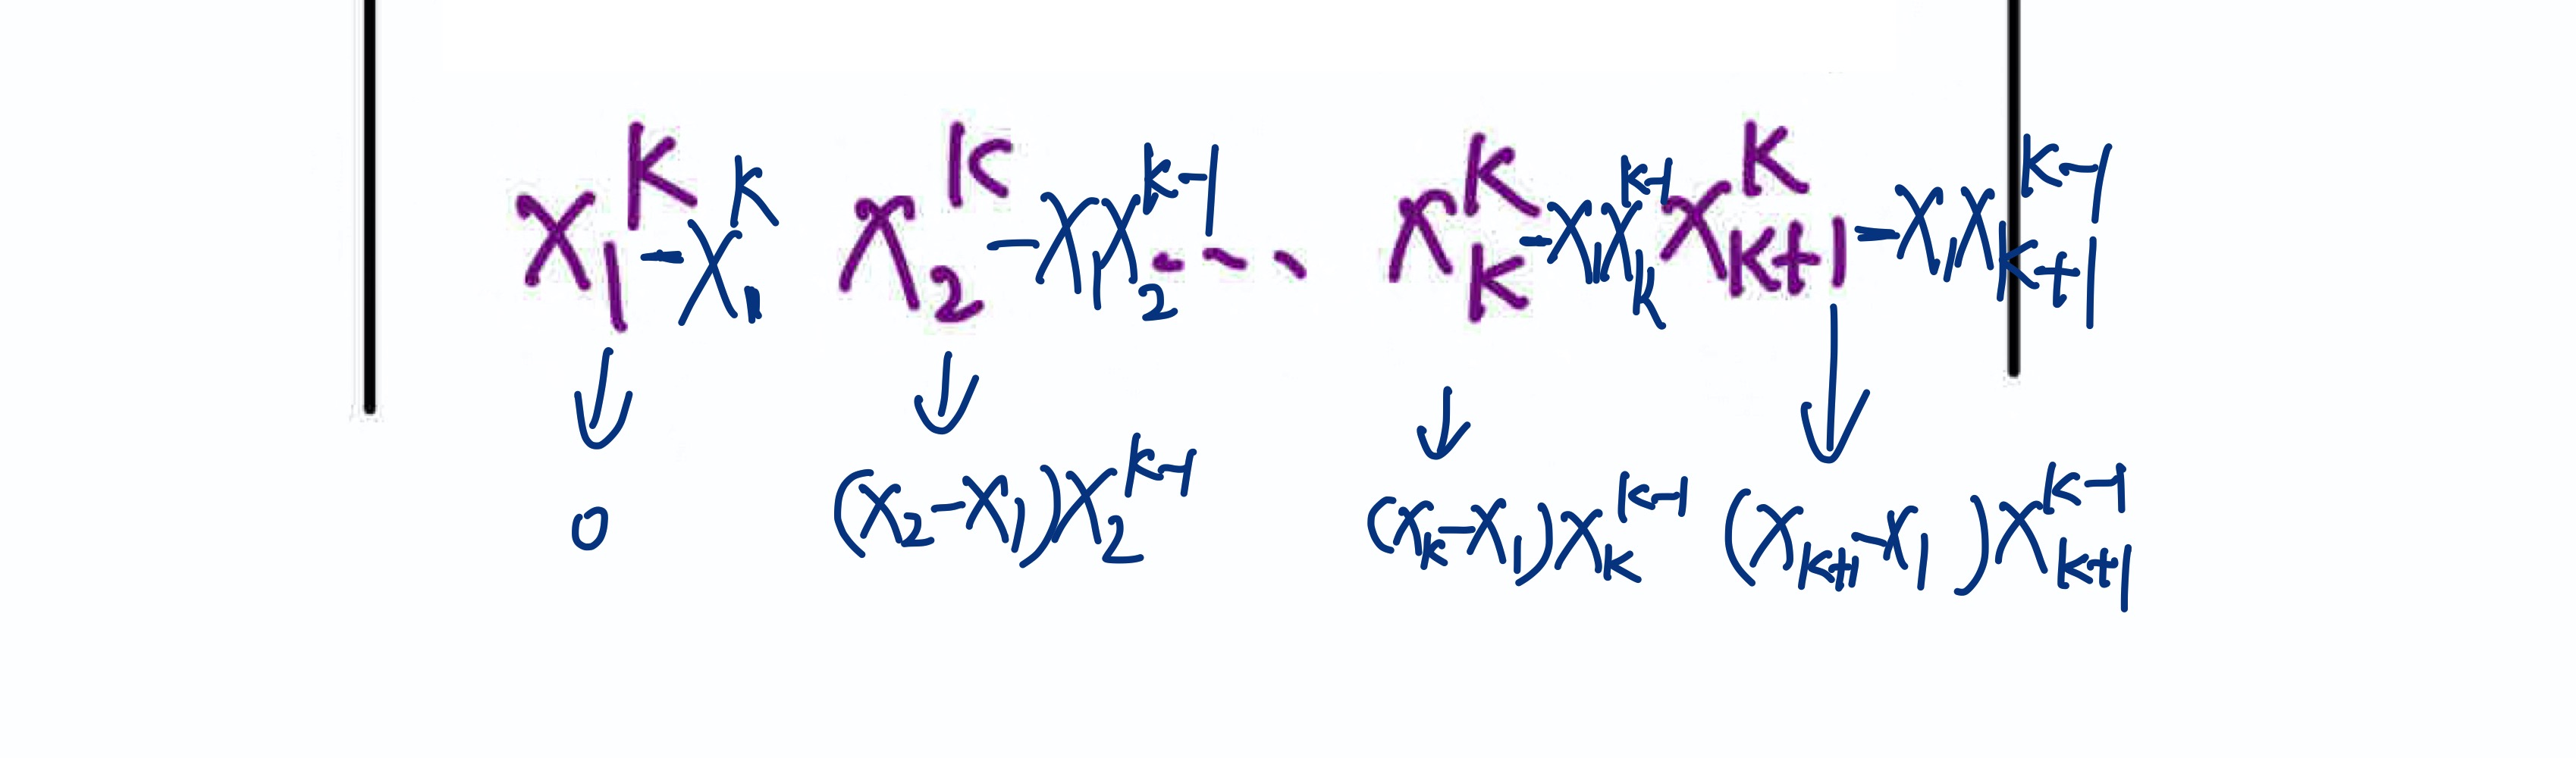 x₁ᵏ - x₁ᵏ x₂ᵏ - x₁x₂ᵏ⁻¹ - - - xₖᵏ - x₁xₖᵏ⁻¹ xₖ₊₁ᵏ - x₁xₖ₊₁ᵏ⁻¹
↓ ↓ ↓ ↓
0 (x₂-x₁)x₂ᵏ⁻¹ (xₖ-x₁)xₖᵏ⁻¹ (xₖ₊₁-x₁)xₖ₊₁ᵏ⁻¹